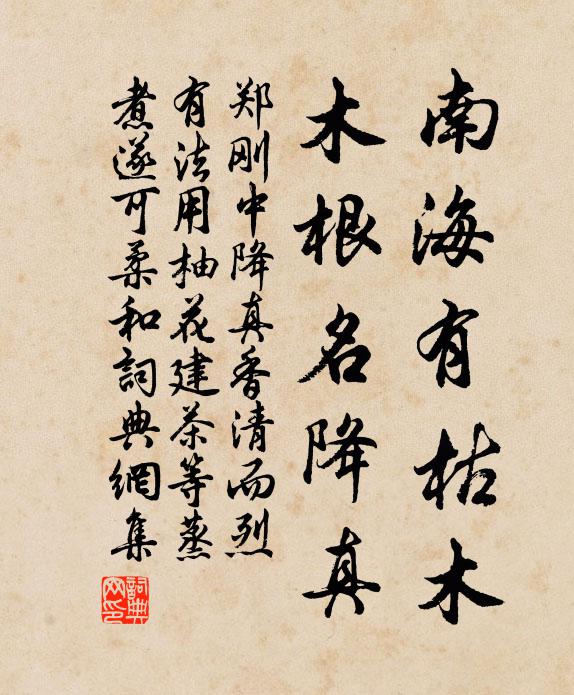 南海有枯木
木根名降真
郑刚中降真香清而烈
有法用柚花建茶等蒸
煮遂可柔和詞典網集
詞典网印